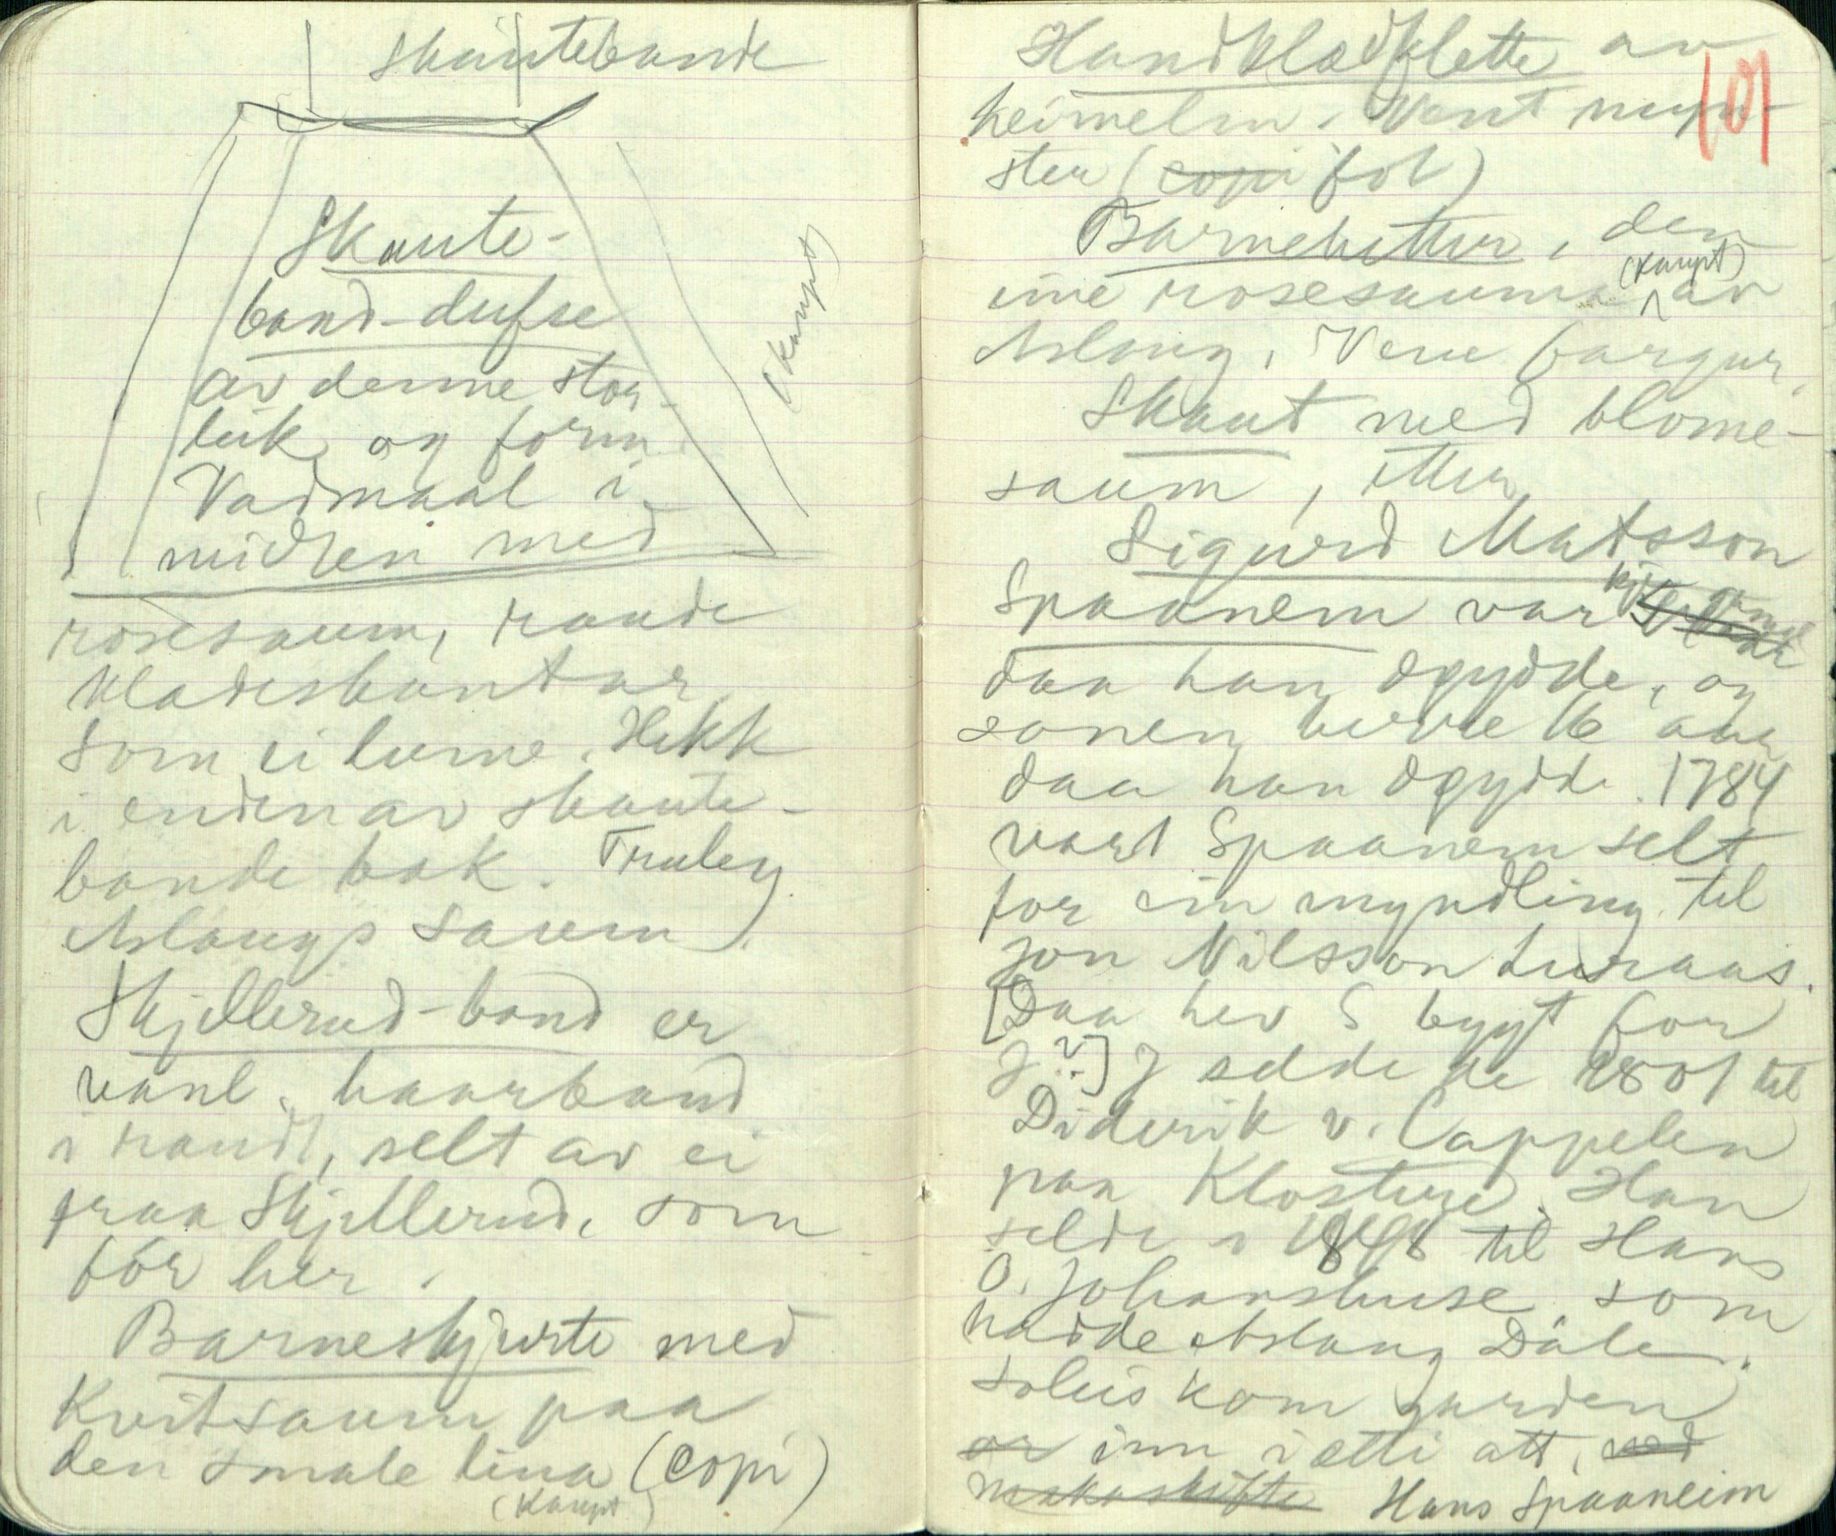 Skautebande
Skaute-
band-dufse
av denne stor-
leik og form
Vadmaal i
midten med
(kaupt)
rosesaum, raude
klædesbontar
som ei lume. Hekk
i enden av skaute-
bande bak. Truleg
Aslaugs saum.
Skjellerud-band er
vanl. haarband
i raudt, selt av ei
fraa Skjellerud, som
fór her.
Barneskjurte med
Kvitsaum paa
den smale lina (copi)
(kaupt)
Handklædflette av
heimelin. Vent myn-
ster (copi fol)
101
Barnehettur, den
eine rosesauma (kaupt) av
Aslaug. Vene fargur.
Skaut med blome-
saum, etter
Sigurd Matsson
Spaanem var
daa han døydde, og
sonen berre 16 aar
daa han døydde. 1784
vart Spaanem selt
for ein myndling til
Jon Nilsson Luraas.
[Daa hev S bygt for
J?] J selde de 1801 til
Diderik v. Cappelen
paa Klosture. Han
selde i 1848 til Hans
O. Johanshuse, som
hadde Aslaug Dále.
Soleis kom garden
or inn i ætti att, ved
makaskifte Hans Spaaneim